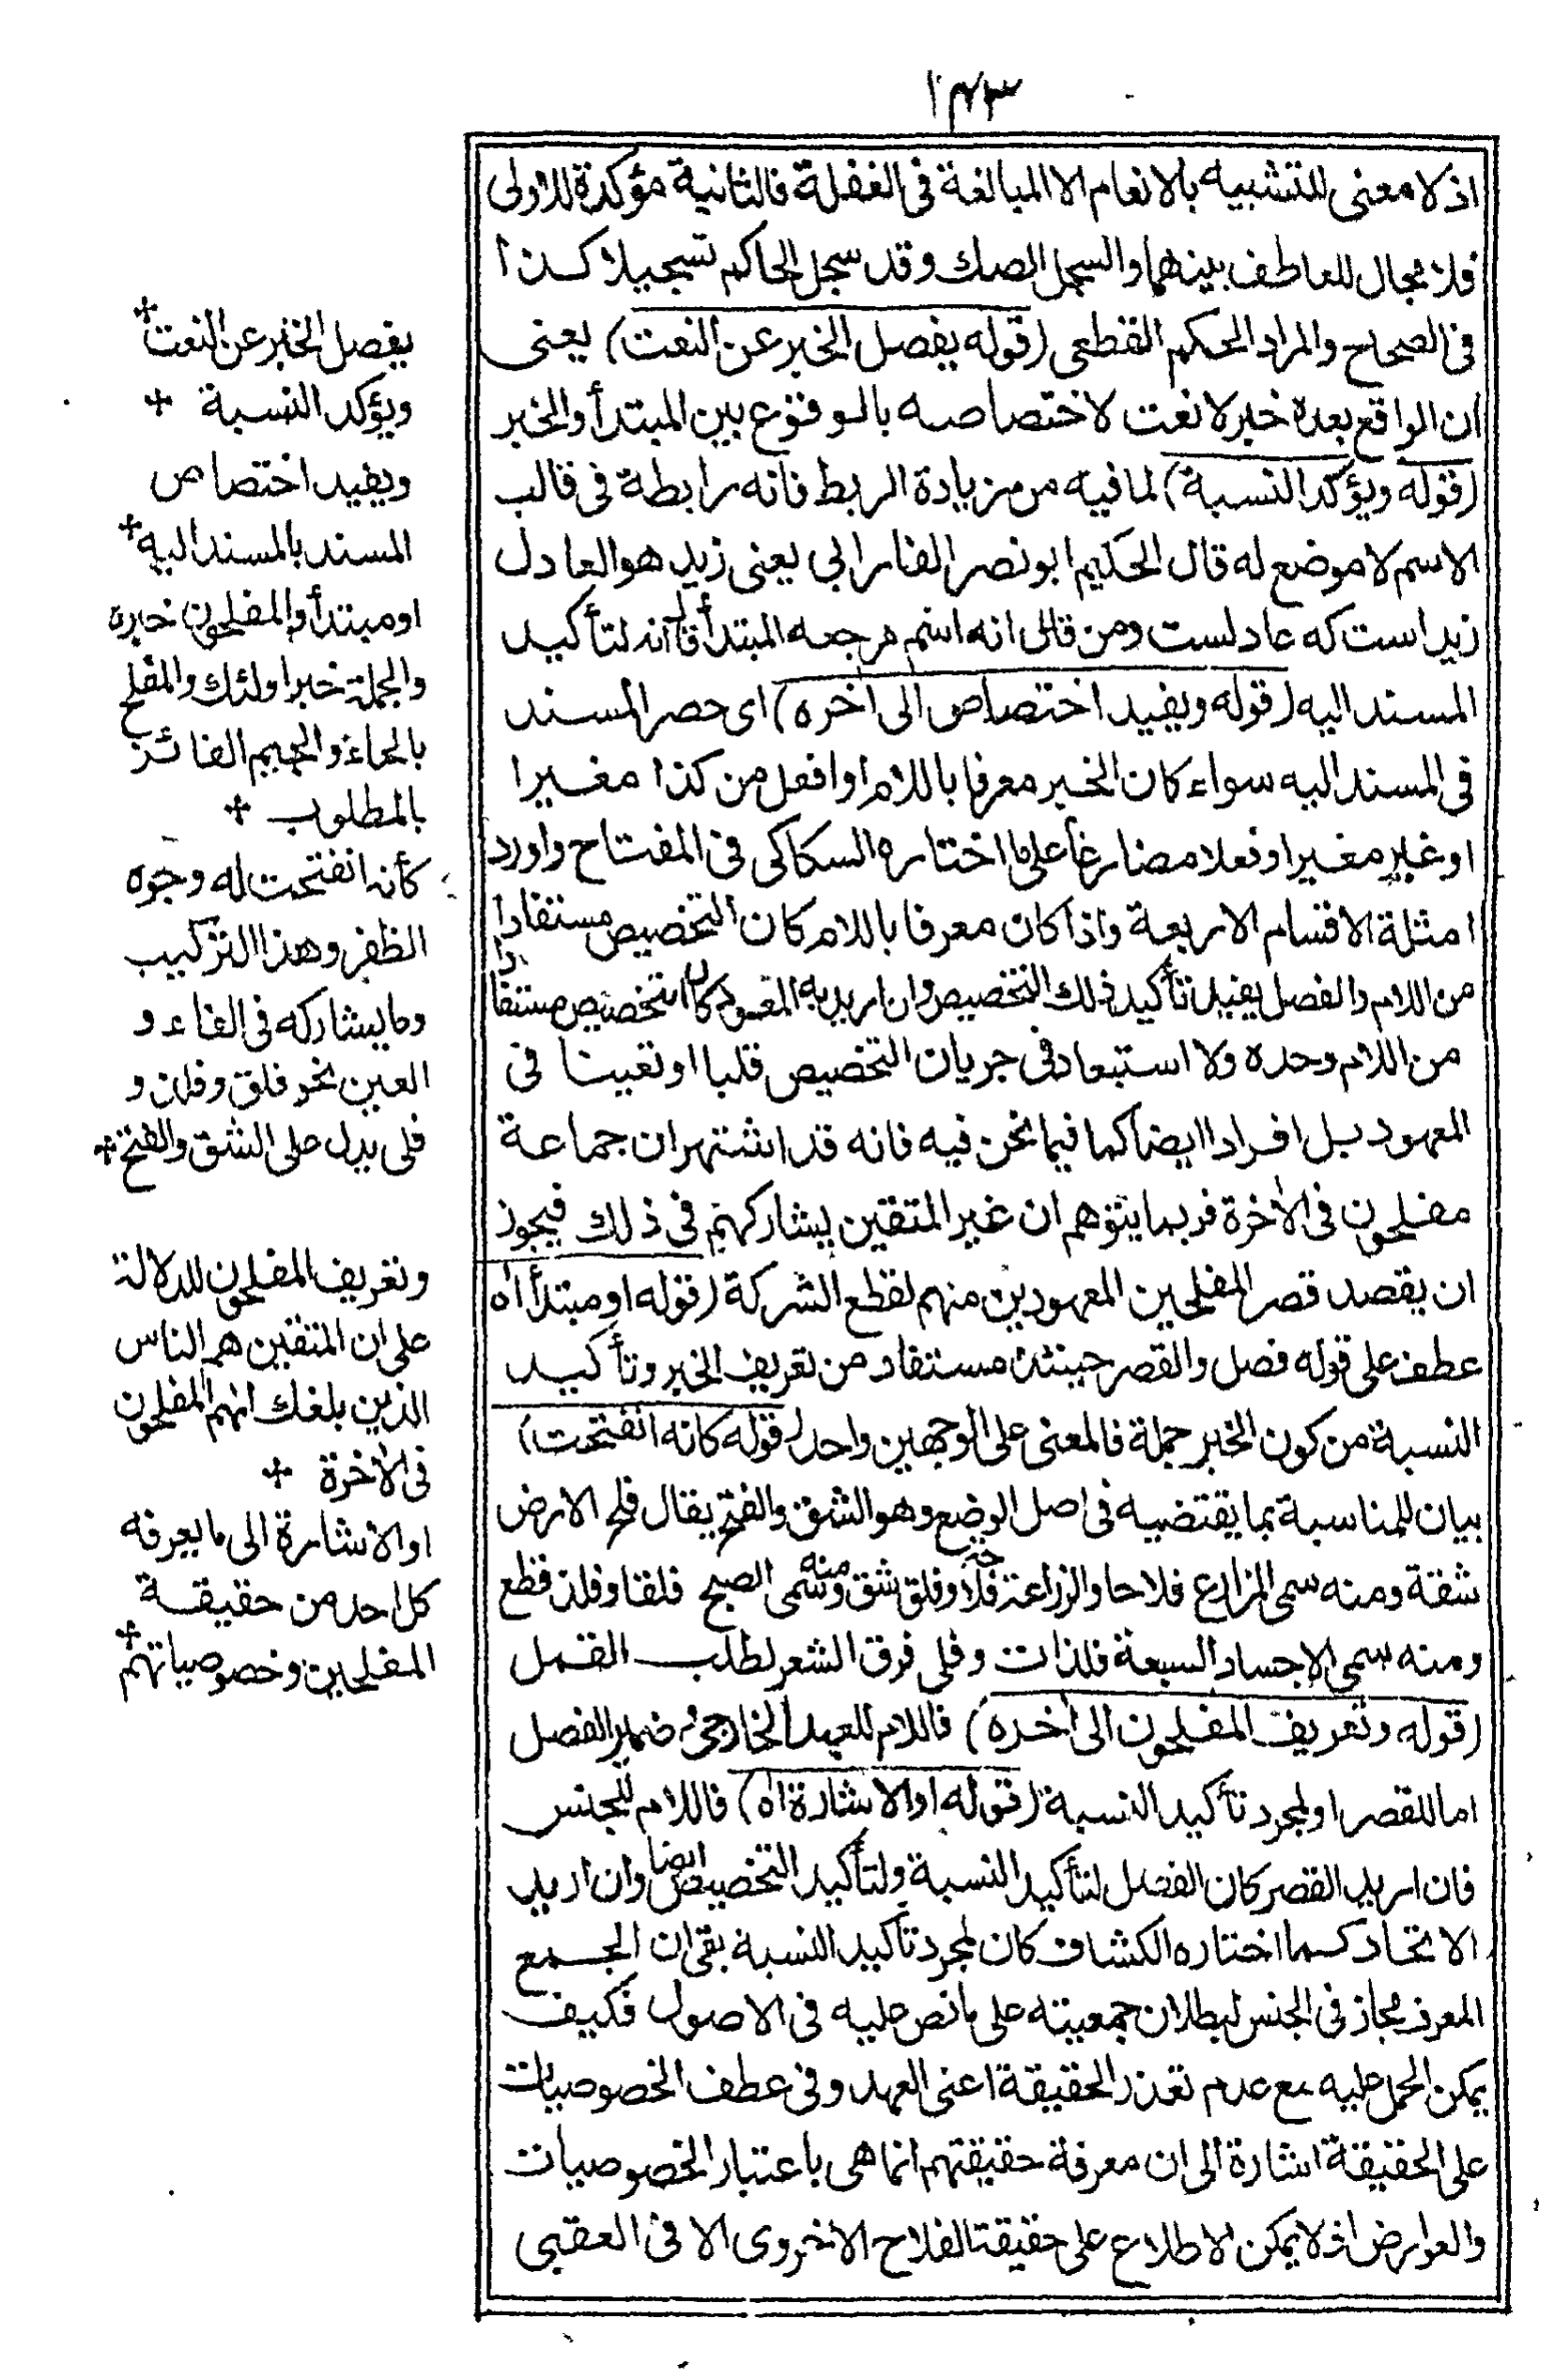 ١٤٣
اذ لا معنى للتشبيه بالانعام الا المبالغة فى الغفلة فالثانية مؤكدة للاولى
فلا مجال للعاطف بينهما والسجل الصك وقد سجل الحاكم تسجيلا كذا
فى الصحاح والمراد الحكم القطعى (قوله يفصل الخبر عن النعت) يعنى
ان الواقع بعده خبر لا نعت لاختصاصه بالوقوع بين المبتدأ والخبر
(قوله ويؤكد النسبة) لما فيه من زيادة الربط فانه رابطة فى قالب
الاسم لا موضع له قال الحكيم ابو نصر الفارابى يعنى زيد هو العادل
زيد است كه عادلست ومن قال انه اسم مرجعه المبتدأ قال انه لتأكيد
المسند اليه (قوله ويفيد اختصاص الى آخره) اى حصر المسند
فى المسند اليه سواء كان الخبر معرفا باللام او افعل من كذا مغيرا
او غير مغير او فعلا مضارعا على ما اختاره السكاكى فى المفتاح واورد
امثلة الاقسام الاربعة واذا كان معرفا باللام كان التخصيص مستفادا
من اللام والفصل يفيد تأكيد ذلك التخصيص وان اريد به المعهود كان التخصيص مستفادا
من اللام وحده ولا استبعاد فى جريان التخصيص قلبا او تعيينا فى
المعهود بل افرادا ايضا كما فيما نحن فيه فانه قد اشتهر ان جماعة
مفلحون فى الآخرة فربما يتوهم ان غير المتقين يشاركهم فى ذلك فيجوز
ان يقصد قصر المفلحين المعهودين منهم لقطع الشركة (قوله او مبتدأ اه
عطف على قوله فصل والقصر حينئذ مستفاد من تعريف الخبر وتأكيد
النسبة من كون الخبر جملة فالمعنى على الوجهين واحد (قوله كانه انفتحت)
بيان للمناسبة بما يقتضيه فى اصل الوضع وهو الشق والفتح يقال فلح الارض
شقة ومنه سمى المزارع فلاحا والزراعة فلاحة وفلق شق ومنه سمى الصبح فلقا وفلذ قطع
ومنه سمى الاجساد السبعة فلذات وفلى فرق الشعر لطلب القمل
(قوله وتعريف المفلحون الى آخره) فاللام للعهد الخارجى وضمير الفصل
اما للقصر او لمجرد تأكيد النسبة (قوله او الاشارة اه) فاللام للجنس
فان اريد القصر كان الفصل لتأكيد النسبة ولتأكيد التخصيص ايضا وان اريد
الاتحاد كما اختاره الكشاف كان لمجرد تأكيد النسبة بقى ان الجمع
المعرف مجاز فى الجنس لبطلان جمعيته على ما نص عليه فى الاصول فكيف
يمكن الحمل عليه مع عدم تعذر الحقيقة اعنى العهد وفى عطف الخصوصيات
على الحقيقة اشارة الى ان معرفة حقيقتهم انما هى باعتبار الخصوصيات
والعوارض اذ لا يمكن الاطلاع على حقيقة الفلاح الاخروى الا فى العقبى
يفصل الخبر عن النعت
ويؤكد النسبة
ويفيد اختصاص
المسند بالمسند اليه
او مبتدأ والمفلحون خبره
والجملة خبر اولئك والمفلح
بالحاء والجيم الفائز
بالمطلوب
كأنه انفتحت له وجوه
الظفر وهذا التركيب
وما يشاركه فى الفاء و
العين نحو فلق وفلذ و
فلى يدل على الشق والفتح
وتعريف المفلحون للدلالة
على ان المتقين هم الناس
الذين بلغك انهم المفلحون
فى الآخرة
او الاشارة الى ما يعرفه
كل احد من حقيقة
المفلحين وخصوصياتهم